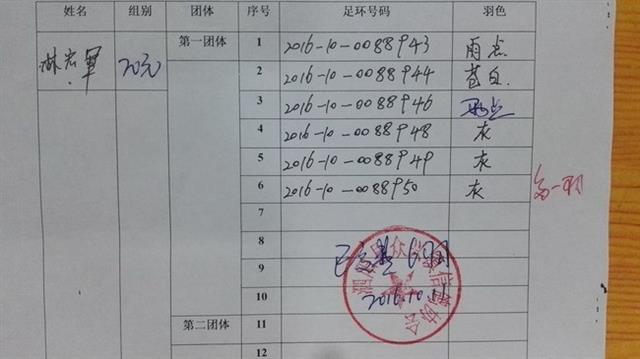 姓名 组别 团体 序号 足环号码 羽色
林宏军 20元 第一团体 1 2016-10-0088943 雨点
2 2016-10-0088944 苍白.
3 2016-10-0088946 雨点
4 2016-10-0088948 灰
5 2016-10-0088949 灰
6 2016-10-0088950 灰
7
8
9
2016.10.
10
第二团体 11
12